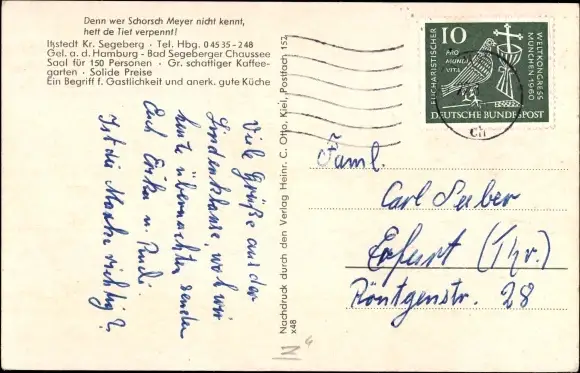 Denn wer Schorsch Meyer nicht kennt,
hett de Tiet verpennt!
Ittstedt Kr. Segeberg · Tel. Hbg. 0 45 35 - 2 48
Gel. a. d. Hamburg - Bad Segeberger Chaussee
Saal für 150 Personen · Gr. schattiger Kaffee-
garten · Solide Preise
Ein Begriff f. Gastlichkeit und anerk. gute Küche
Viele Grüße aus der
Lindenklause, wo wir
heute übernachten senden
Euch Erika u. Rudi.
Ist die Marke richtig?
Nachdruck durch den Verlag Heinr. C. Otto, Kiel, Postfach 152
x48
10
PRO
MUNDI
VITA
EUCHARISTISCHER
WELTKONGRESS
MÜNCHEN 1960
DEUTSCHE BUNDESPOST
Faml.
Carl Seeber
Erfurt (Thr.)
Röntgenstr. 28